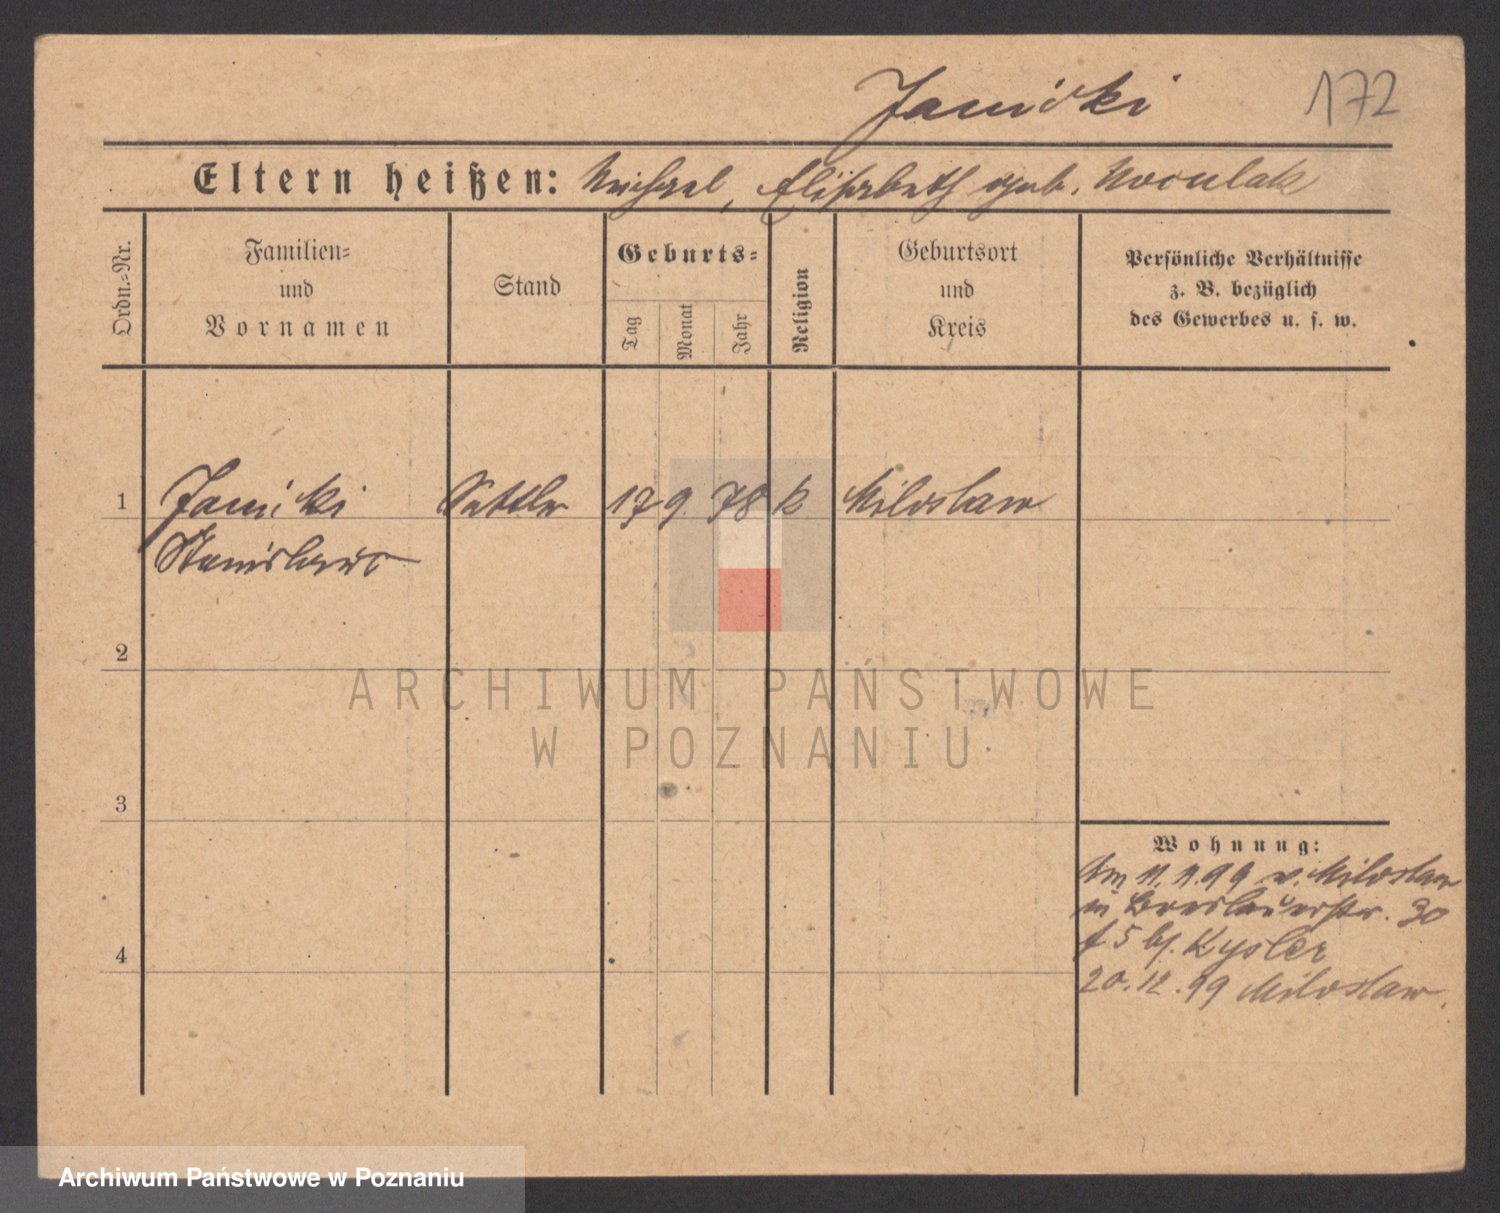 Janicki 172
Eltern heißen: Michael, Elisabeth geb. Nowulak
Ordn.-Nr.
Familien-
und
Vornamen
Stand
Geburts-
Tag
Monat
Jahr
Religion
Geburtsort
und
Kreis
Persönliche Verhältnisse
z. B. bezüglich
des Gewerbes u. s. w.
1 Janicki Sattler 17 9 78 k Miloslaw
Stanislaus
2
ARCHIWUM PAŃSTWOWE
W POZNANIU
3
Wohnung:
Am 11.11.99 v. Miloslaw
in Breslauerstr. 30
b/. Kysler
4
20.12.99 Miloslaw.
Archiwum Państwowe w Poznaniu